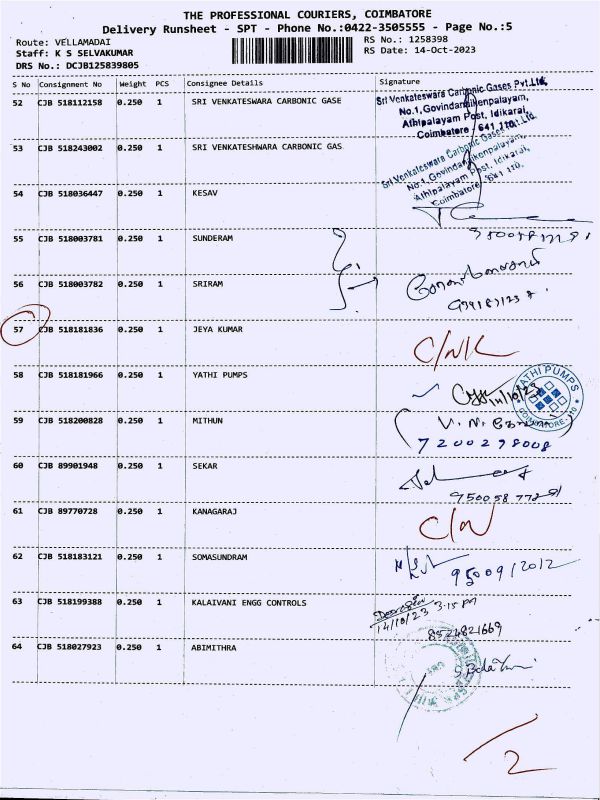 THE PROFESSIONAL COURIERS, COIMBATORE
Delivery Runsheet - SPT - Phone No.:0422-3505555 - Page No.:5
Route: VELLAMADAI
RS No.: 1258398
Staff: K S SELVAKUMAR
RS Date: 14-Oct-2023
DRS No.: DCJB125839805
S No Consignment No Weight PCS Consignee Details Signature
52 CJB 518112158 0.250 1 SRI VENKATESWARA CARBONIC GASE
Sri Venkateswara Carbonic Gases Pvt.Ltd,
Athipalayam Post, Idikarai,
Coimbatore - 641 110.
53 CJB 518243002 0.250 1 SRI VENKATESHWARA CARBONIC GAS
Sri Venkateswara Carbonic Gases Pvt.Ltd.
Athipalayam Post, Idikarai,
Coimbatore - 641 110.
54 CJB 518036447 0.250 1 KESAV
55 CJB 518003781 0.250 1 SUNDERAM
56 CJB 518003782 0.250 1 SRIRAM
57 CJB 518181836 0.250 1 JEYA KUMAR
58 CJB 518181966 0.250 1 YATHI PUMPS
14/10/23
COIMBATORE
59 CJB 518200828 0.250 1 MITHUN
7200298008
60 CJB 89901948 0.250 1 SEKAR
61 CJB 89770728 0.250 1 KANAGARAJ
C/N
62 CJB 518183121 0.250 1 SOMASUNDRAM
63 CJB 518199388 0.250 1 KALAIVANI ENGG CONTROLS
14/10/23 3.15 PM
8524821669
64 CJB 518027923 0.250 1 ABIMITHRA
2